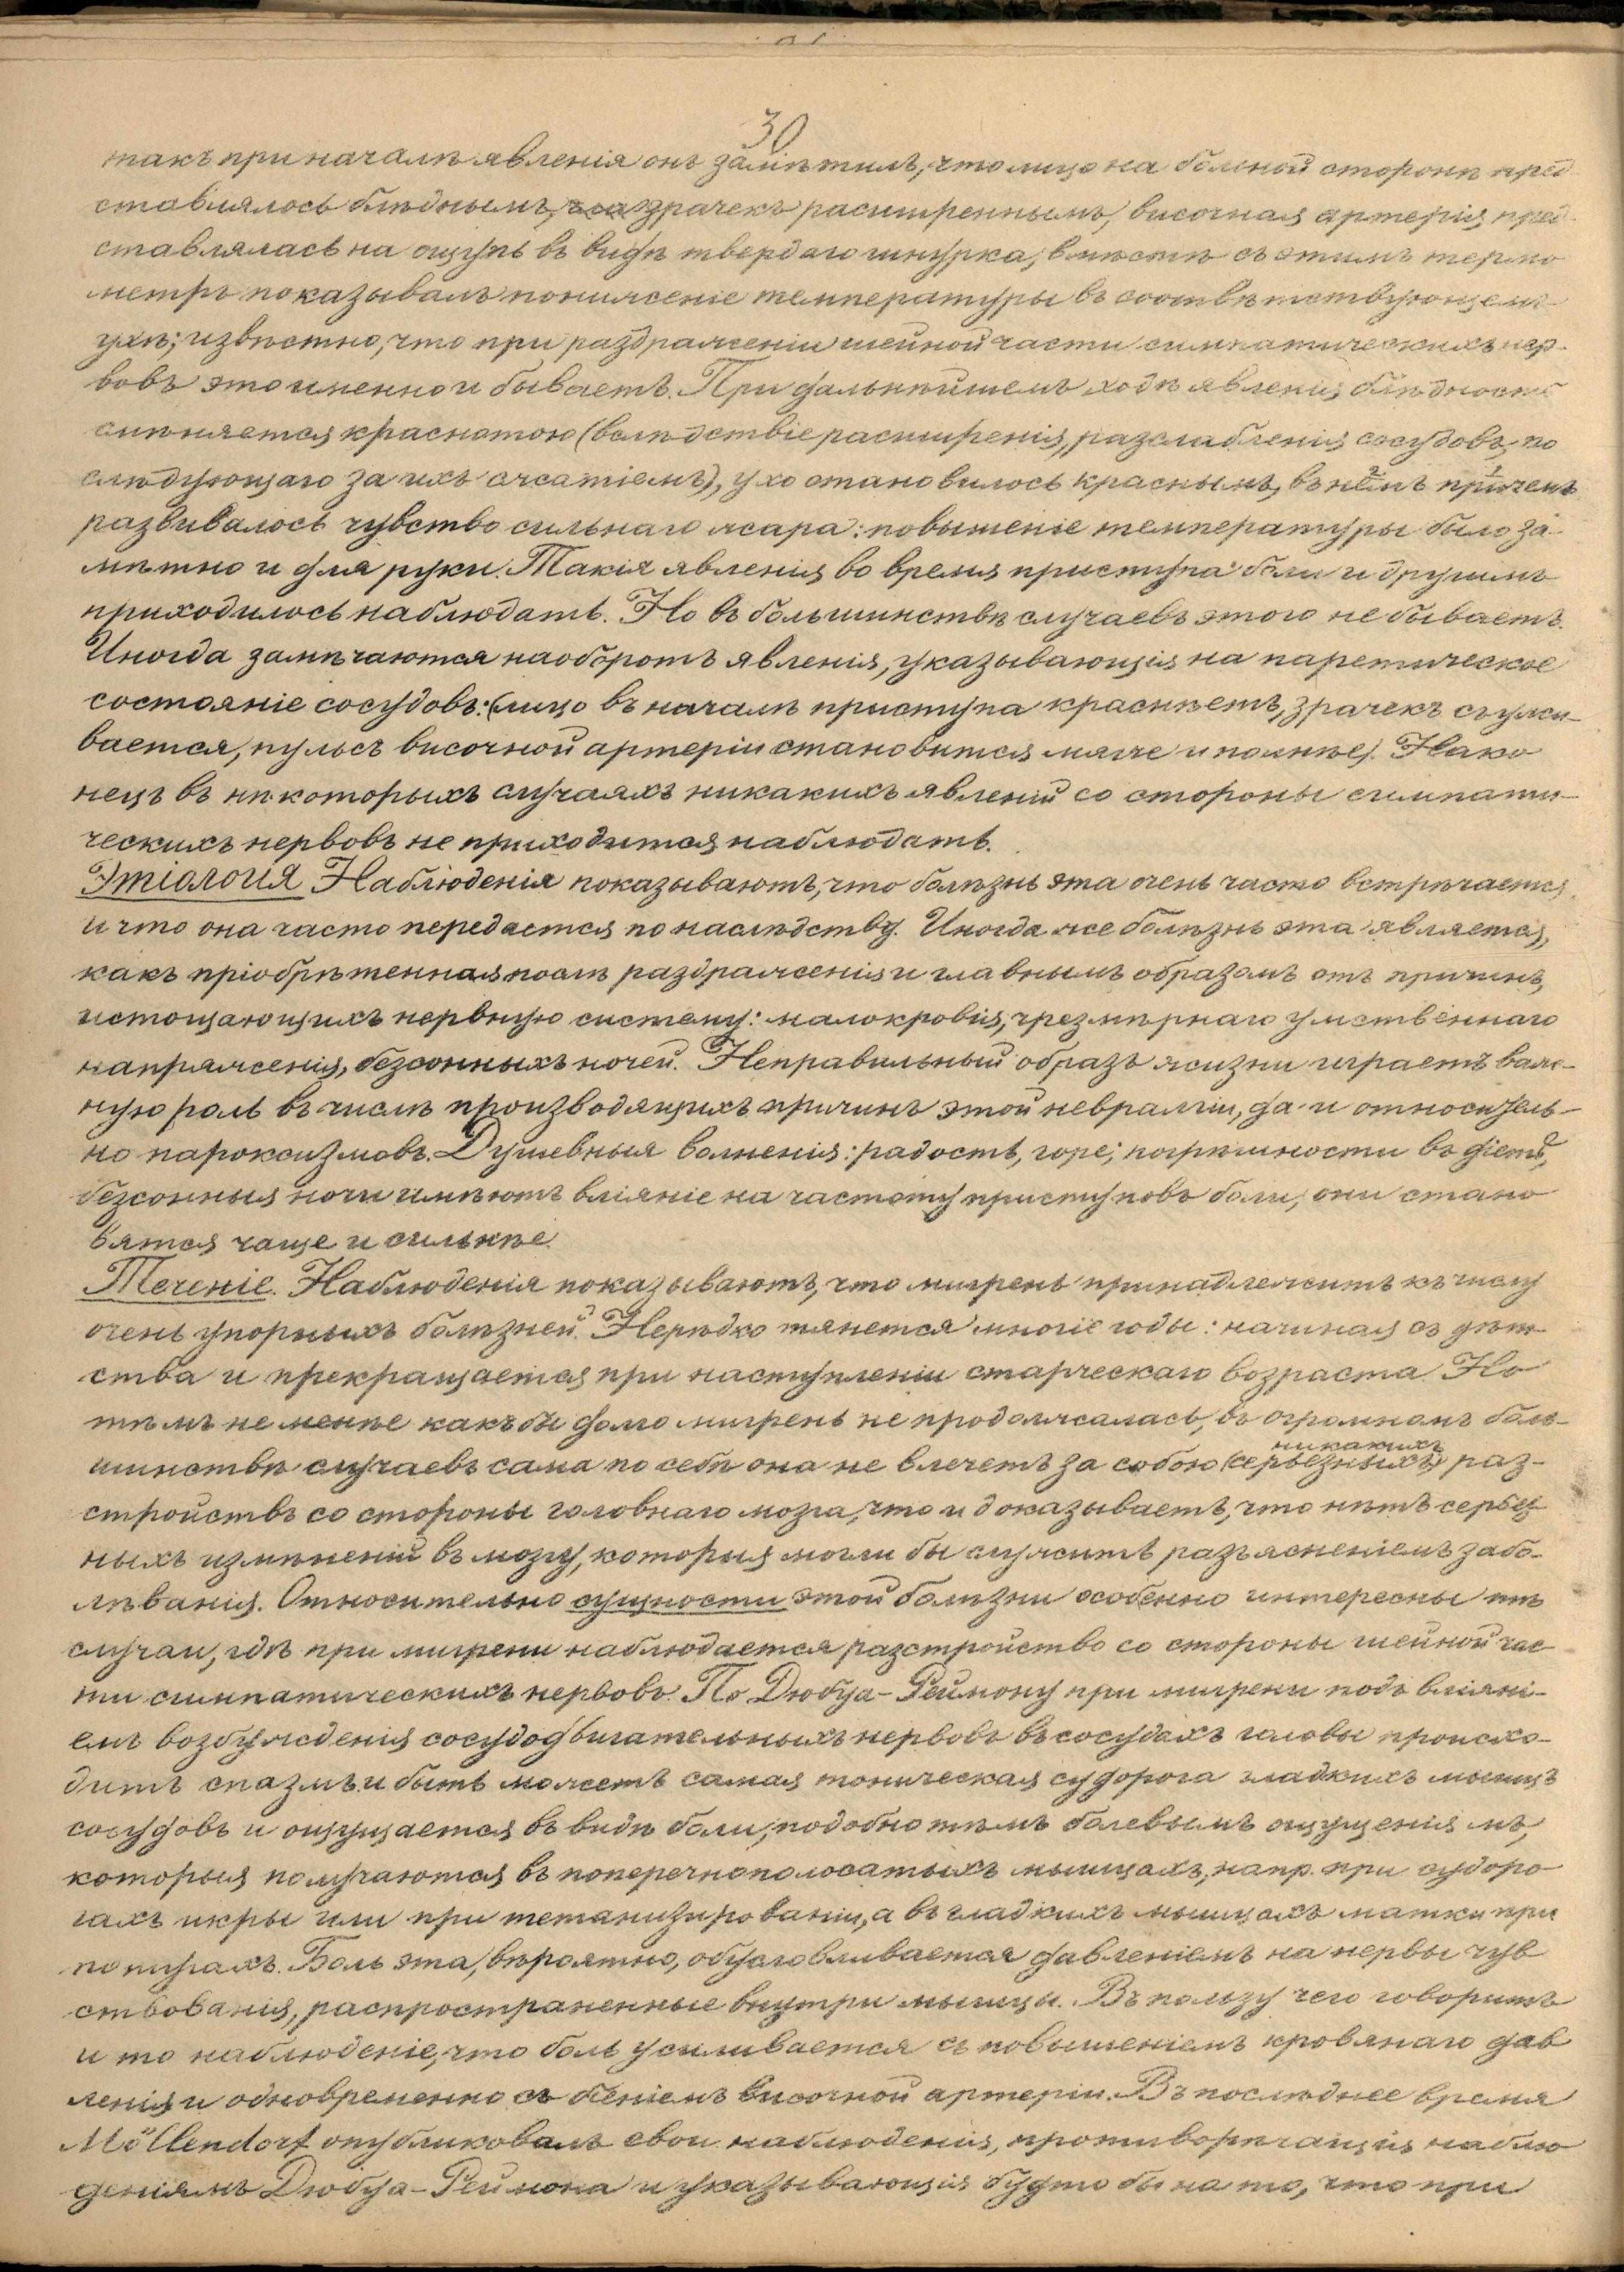 30
такъ при началѣ явленія онъ замѣтилъ, что лицо на больной сторонѣ пред
ставлялось блѣднымъ, зрачекъ расширеннымъ, височная артерія пред
ставлялась на ощупь въ видѣ твердаго шнурка, вмѣстѣ съ этимъ термо
метръ показывалъ пониженіе температуры въ соотвѣтствующемъ
ухѣ; извѣстно, что при раздраженіи шейной части симпатическихъ нер-
вовъ это именно и бываетъ. При дальнѣйшемъ ходѣ явленія блѣдность
смѣняется краснотою (вслѣдствіе расширенія, разслабленія сосудовъ, по
слѣдующаго за ихъ сжатіемъ), ухо становилось краснымъ, въ немъ причемъ
развивалось чувство сильнаго жара: повышеніе температуры было за-
мѣтно и для руки. Такія явленія во время приступа боли и другимъ
приходилось наблюдать. Но въ большинствѣ случаевъ этого не бываетъ.
Иногда замѣчаются наоборотъ явленія, указывающія на паретическое
состояніе сосудовъ: (лицо въ началѣ приступа краснѣетъ, зрачекъ съужи-
вается, пульсъ височной артеріи становится мягче и полнѣе). Нако
нецъ въ нѣкоторыхъ случаяхъ никакихъ явленій со стороны симпати-
ческихъ нервовъ не приходится наблюдать.
Этіологія Наблюденія показываютъ, что болѣзнь эта очень часто встрѣчается
и что она часто передается по наслѣдству. Иногда же болѣзнь эта является,
какъ пріобрѣтенная послѣ раздраженія и главнымъ образомъ отъ причинъ,
истощающихъ нервную систему: малокровія, чрезмѣрнаго умственнаго
напряженія, безсонныхъ ночей. Неправильный образъ жизни играетъ важ-
ную роль въ числѣ производящихъ причинъ этой невралгіи, да и относитель-
но пароксизмовъ. Душевныя волненія: радость, горе; погрѣшности въ діетѣ,
безсонныя ночи имѣютъ вліяніе на частоту приступовъ боли, они стано
вятся чаще и сильнѣе.
Теченіе. Наблюденія показываютъ, что мигрень принадлежитъ къ числу
очень упорныхъ болѣзней. Нерѣдко тянется многіе годы: начиная съ дѣт
ства и прекращается при наступленіи старческаго возраста. Но
тѣмъ не менѣе какъ бы долго мигрень не продолжалась, въ огромномъ боль-
шинствѣ случаевъ сама по себѣ она не влечетъ за собою (серьезныхъ) никакихъ раз-
стройствъ со стороны головнаго мозга, что и доказываетъ, что нѣтъ серьез
ныхъ измѣненій въ мозгу, которыя могли бы служить разъясненіемъ забо-
лѣванія. Относительно сущности этой болѣзни особенно интересны тѣ
случаи, гдѣ при мигрени наблюдается разстройство со стороны шейной час
ти симпатическихъ нервовъ. По Дюбуа-Реймону при мигрени подъ вліяні-
емъ возбужденія сосудодвигательныхъ нервовъ въ сосудахъ головы происхо-
дитъ спазмъ и быть можетъ самая тоническая судорога гладкихъ мышцъ
сосудовъ и ощущается въ видѣ боли, подобно тѣмъ болевымъ ощущеніямъ,
которыя получаются въ поперечнополосатыхъ мышцахъ, напр. при судоро
гахъ икры или при тетанизированіи, а въ гладкихъ мышцахъ матки при
потугахъ. Боль эта, вѣроятно, обусловливается давленіемъ на нервы чув
ствованія, распространенные внутри мышцы. Въ пользу чего говоритъ
и то наблюденіе, что боль усиливается съ повышеніемъ кровянаго дав
ленія и одновременно съ біеніемъ височной артеріи. Въ послѣднее время
Möllendorf опубликовалъ свои наблюденія, противорѣчащія наблю
деніямъ Дюбуа-Реймона и указывающія будто бы на то, что при